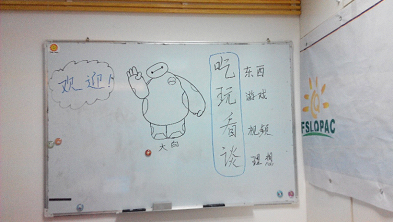 欢迎!
大白
吃 东西
玩 游戏
看 视频
谈 理想
FSLOPAC